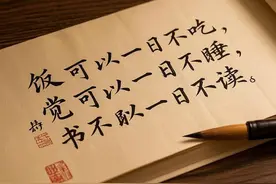 饭可以一日不吃，
觉可以一日不睡，
书不一日不读。